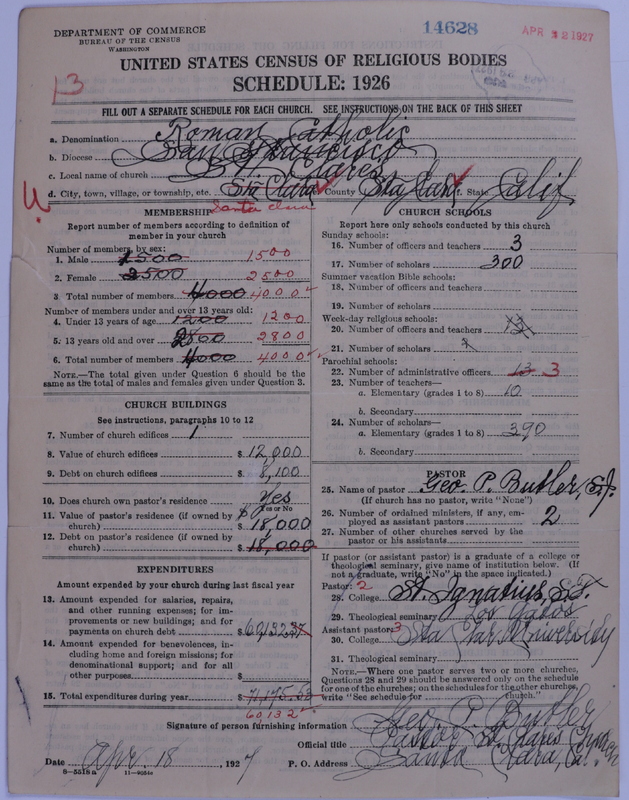 14628
APR 12 1927
DEPARTMENT OF COMMERCE
BUREAU OF THE CENSUS
WASHINGTON
UNITED STATES CENSUS OF RELIGIOUS BODIES
SCHEDULE: 1926
13
FILL OUT A SEPARATE SCHEDULE FOR EACH CHURCH. SEE INSTRUCTIONS ON THE BACK OF THIS SHEET
a. Denomination Roman Catholic
b. Diocese San Francisco
c. Local name of church St. Clares
d. City, town, village, or township, etc. Sta Clara County Sta Clara f. State Calif
Santa Clara
MEMBERSHIP
Report number of members according to definition of
member in your church
Number of members, by sex:
1. Male 1500 1500
2. Female 2500 2500
3. Total number of members 4000 4000
Number of members under and over 13 years old:
4. Under 13 years of age 1200 1200
5. 13 years old and over 2800 2800
6. Total number of members 4000 4000
NOTE.—The total given under Question 6 should be the
same as the total of males and females given under Question 3.
CHURCH BUILDINGS
See instructions, paragraphs 10 to 12
7. Number of church edifices 1
8. Value of church edifices $ 12,000
9. Debt on church edifices $ 8,100
10. Does church own pastor's residence Yes
Yes or No
11. Value of pastor's residence (if owned by
church) $ 18,000
12. Debt on pastor's residence (if owned by
church) $ 18,000
EXPENDITURES
Amount expended by your church during last fiscal year
13. Amount expended for salaries, repairs,
and other running expenses; for im-
provements or new buildings; and for
payments on church debt $
14. Amount expended for benevolences, in-
cluding home and foreign missions; for
denominational support; and for all
other purposes $
15. Total expenditures during year $
60,132
CHURCH SCHOOLS
Report here only schools conducted by this church
Sunday schools:
16. Number of officers and teachers 3
17. Number of scholars 300
Summer vacation Bible schools:
18. Number of officers and teachers
19. Number of scholars
Week-day religious schools:
20. Number of officers and teachers
21. Number of scholars
Parochial schools:
22. Number of administrative officers 13 3
23. Number of teachers—
a. Elementary (grades 1 to 8) 10
b. Secondary
24. Number of scholars—
a. Elementary (grades 1 to 8) 390
b. Secondary
PASTOR
25. Name of pastor Geo. P. Butler, S.J.
(If church has no pastor, write "None")
26. Number of ordained ministers, if any, em-
ployed as assistant pastors 2
27. Number of other churches served by the
pastor or his assistants
If pastor (or assistant pastor) is a graduate of a college or
theological seminary, give name of institution below. (If
not a graduate, write "No" in the space indicated.)
Pastor: 2
28. College St. Ignatius, S.F.
29. Theological seminary Los Gatos
Assistant pastor: 3
30. College Sta Clar. University
31. Theological seminary
NOTE.—Where one pastor serves two or more churches,
Questions 28 and 29 should be answered only on the schedule
for one of the churches; on the schedules for the other churches,
write "See schedule for Church."
Signature of person furnishing information Geo. P. Butler
Official title Pastor St. Clares Church
Date Apr. 18, 1927 P. O. Address Santa Clara, Ca.
8—5518a 11—9054c